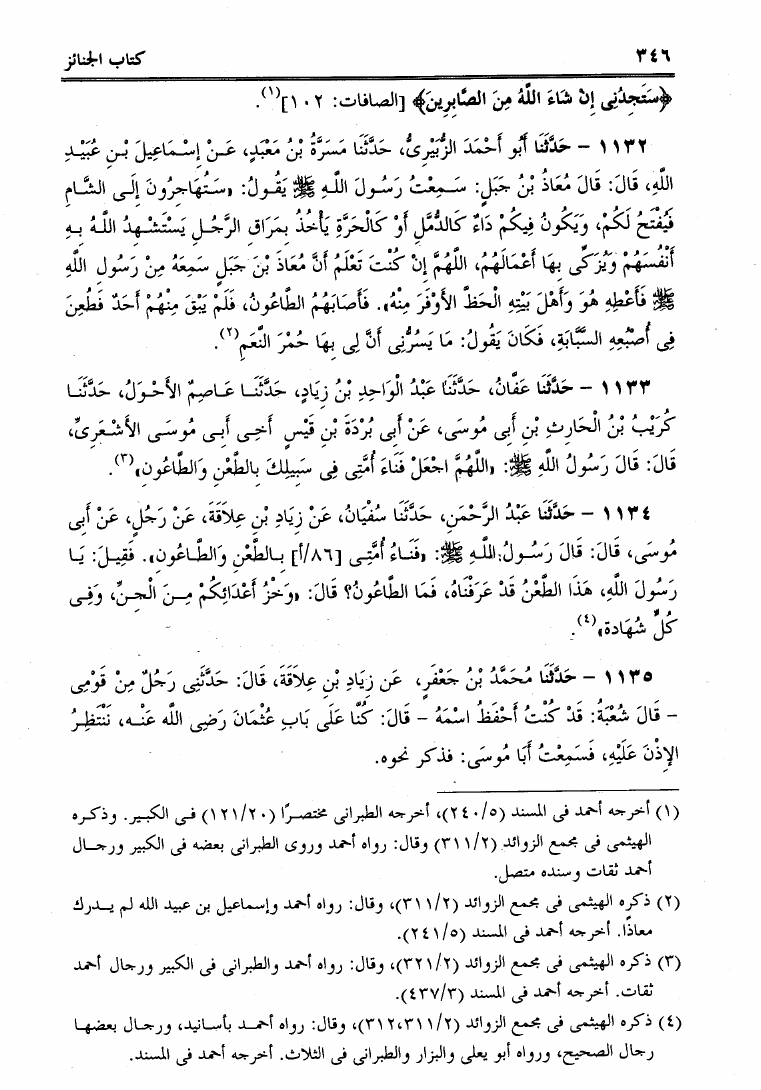 ٣٤٦ كتاب الجنائز
﴿سَتَجِدُنِى إِنْ شَاءَ اللَّهُ مِنَ الصَّابِرِينَ﴾ [الصافات: ١٠٢](١).
١١٣٢ - حَدَّثَنَا أَبُو أَحْمَدَ الزُّبَيْرِىُّ، حَدَّثَنَا مَسَرَّةُ بْنُ مَعْبَدٍ، عَنْ إِسْمَاعِيلَ بْنِ عُبَيْدِ
اللَّهِ، قَالَ: قَالَ مُعَاذُ بْنُ جَبَلٍ: سَمِعْتُ رَسُولَ اللَّهِ ﷺ يَقُولُ: «سَتُهَاجِرُونَ إِلَى الشَّامِ
فَيُفْتَحُ لَكُمْ، وَيَكُونُ فِيكُمْ دَاءٌ كَالدُّمَّلِ أَوْ كَالْحَرَّةِ يَأْخُذُ بِمَرَاقِّ الرَّجُلِ يَسْتَشْهِدُ اللَّهُ بِهِ
أَنْفُسَهُمْ وَيُزَكِّى بِهَا أَعْمَالَهُمُ، اللَّهُمَّ إِنْ كُنْتَ تَعْلَمُ أَنَّ مُعَاذَ بْنَ جَبَلٍ سَمِعَهُ مِنْ رَسُولِ اللَّهِ
ﷺ فَأَعْطِهِ هُوَ وَأَهْلَ بَيْتِهِ الْحَظَّ الأَوْفَرَ مِنْهُ». فَأَصَابَهُمُ الطَّاعُونُ، فَلَمْ يَبْقَ مِنْهُمْ أَحَدٌ فَطُعِنَ
فِى أُصْبُعِهِ السَّبَّابَةِ، فَكَانَ يَقُولُ: مَا يَسُرُّنِى أَنَّ لِى بِهَا حُمْرَ النَّعَمِ(٢).
١١٣٣ - حَدَّثَنَا عَفَّانُ، حَدَّثَنَا عَبْدُ الْوَاحِدِ بْنُ زِيَادٍ، حَدَّثَنَا عَاصِمٌ الأَحْوَلُ، حَدَّثَنَا
كُرَيْبُ بْنُ الْحَارِثِ بْنِ أَبِى مُوسَى، عَنْ أَبِى بُرْدَةَ بْنِ قَيْسٍ أَخِى أَبِى مُوسَى الأَشْعَرِىِّ،
قَالَ: قَالَ رَسُولُ اللَّهِ ﷺ: «اللَّهُمَّ اجْعَلْ فَنَاءَ أُمَّتِى فِى سَبِيلِكَ بِالطَّعْنِ وَالطَّاعُونِ»(٣).
١١٣٤ - حَدَّثَنَا عَبْدُ الرَّحْمَنِ، حَدَّثَنَا سُفْيَانُ، عَنْ زِيَادِ بْنِ عِلاَقَةَ، عَنْ رَجُلٍ، عَنْ أَبِى
مُوسَى، قَالَ: قَالَ رَسُولُ اللَّهِ ﷺ: «فَنَاءُ أُمَّتِى [٨٦/أ] بِالطَّعْنِ وَالطَّاعُونِ». فَقِيلَ: يَا
رَسُولَ اللَّهِ، هَذَا الطَّعْنُ قَدْ عَرَفْنَاهُ، فَمَا الطَّاعُونُ؟ قَالَ: «وَخْزُ أَعْدَائِكُمْ مِنَ الْجِنِّ، وَفِى
كُلٍّ شُهَادة»(٤).
١١٣٥ - حَدَّثَنَا مُحَمَّدُ بْنُ جَعْفَرٍ، عَن زِيَادِ بْنِ عِلاَقَةَ، قَالَ: حَدَّثَنِى رَجُلٌ مِنْ قَوْمِى
- قَالَ شُعْبَةُ: قَدْ كُنْتُ أَحْفَظُ اسْمَهُ - قَالَ: كُنَّا عَلَى بَابِ عُثْمَانَ رَضِى اللَّه عَنْه، نَنْتَظِرُ
الإِذْنَ عَلَيْهِ، فَسَمِعْتُ أَبَا مُوسَى: فذكر نحوه.
(١) أخرجه أحمد فى المسند (٢٤٠/٥)، أخرجه الطبرانى مختصرًا (١٢١/٢٠) فى الكبير. وذكره
الهيثمى فى مجمع الزوائد (٣١١/٢) وقال: رواه أحمد وروى الطبرانى بعضه فى الكبير ورجال
أحمد ثقات وسنده متصل.
(٢) ذكره الهيثمى فى مجمع الزوائد (٣١١/٢)، وقال: رواه أحمد وإسماعيل بن عبيد الله لم يدرك
معاذًا. أخرجه أحمد فى المسند (٢٤١/٥).
(٣) ذكره الهيثمى فى مجمع الزوائد (٣٢١/٢)، وقال: رواه أحمد والطبرانى فى الكبير ورجال أحمد
ثقات. أخرجه أحمد فى المسند (٤٣٧/٣).
(٤) ذكره الهيثمى فى مجمع الزوائد (٣١٢،٣١١/٢)، وقال: رواه أحمد بأسانيد، ورجال بعضها
رجال الصحيح، ورواه أبو يعلى والبزار والطبرانى فى الثلاث. أخرجه أحمد فى المسند.